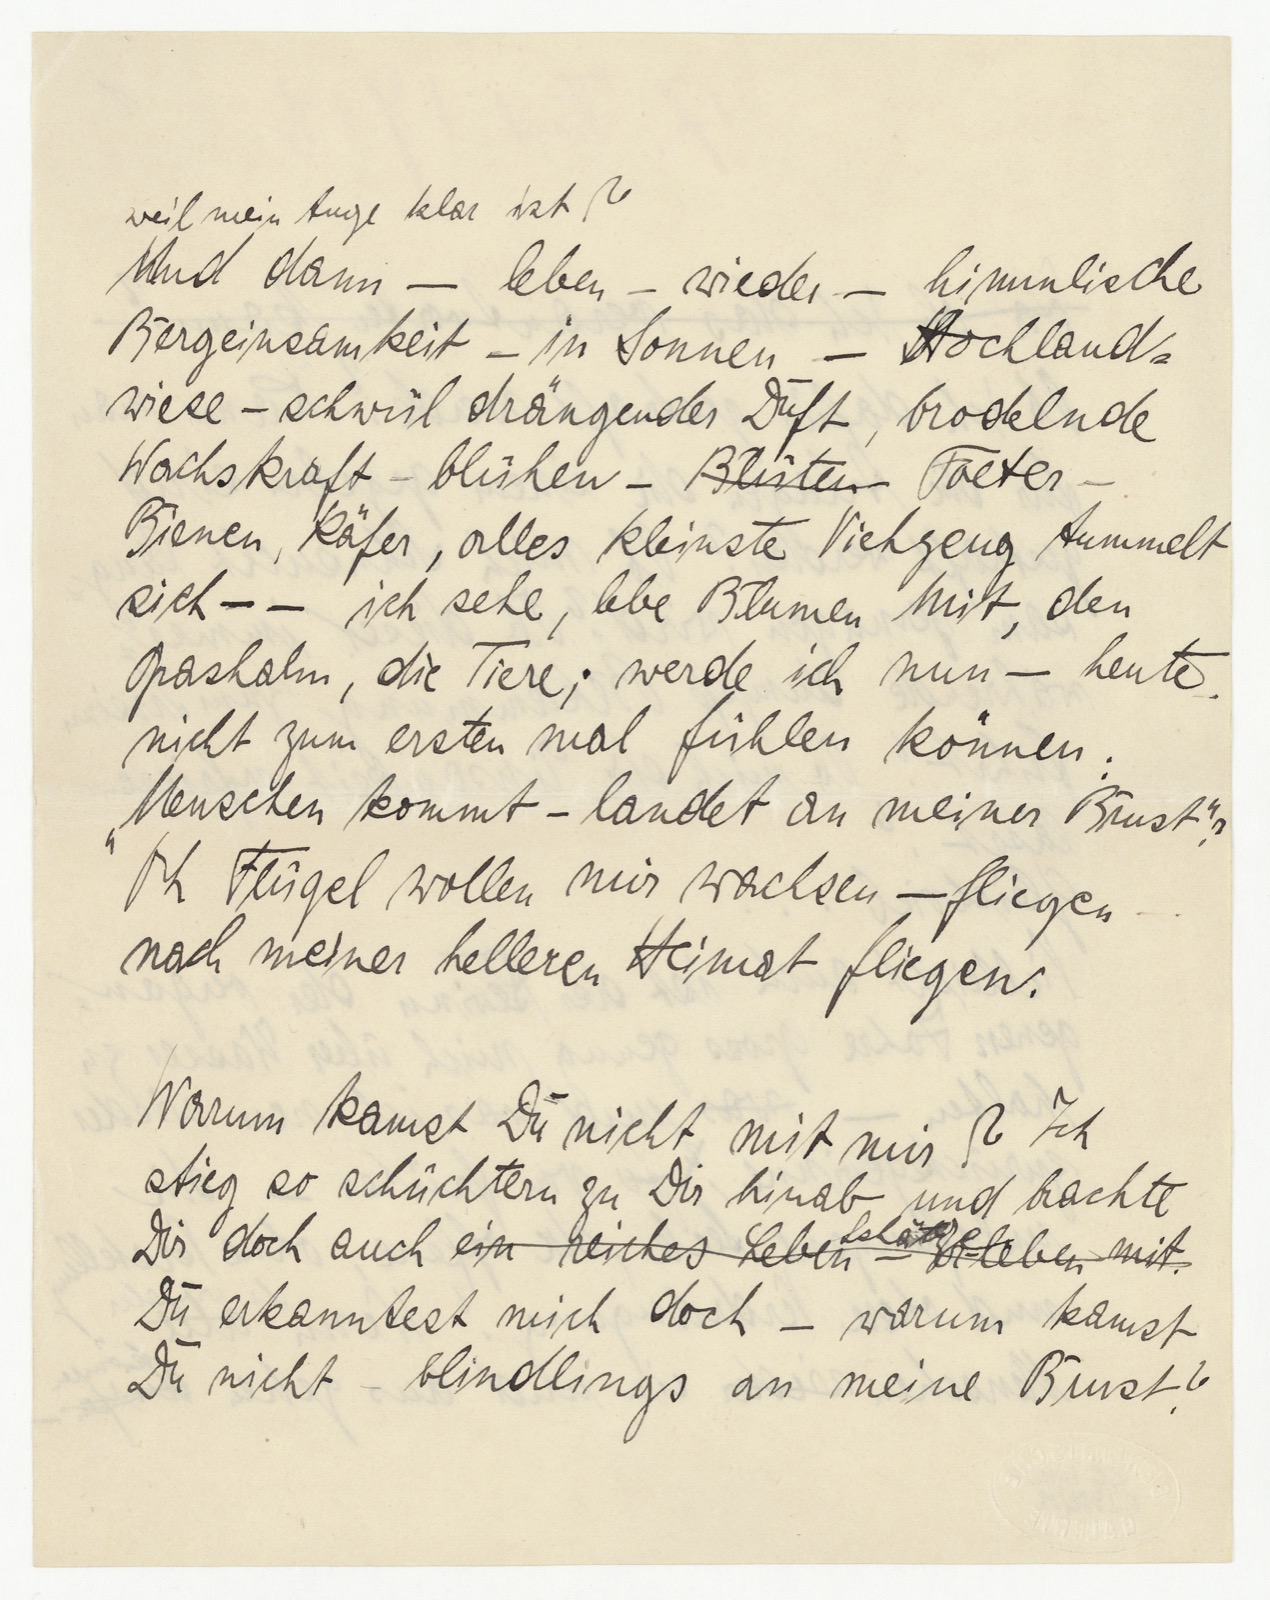 weil mein Auge klar ist?
Und dann — leben – wieder — himmlische
Bergeinsamkeit – in Sonnen — Hochland=
wiese – schwül drängender Duft, brodelnde
Wachskraft – blühen – Blüten Foeter –
Bienen, Käfer, alles kleinste Viehzeug tummelt
sich – – ich sehe, lebe Blumen mit, den
Grashalm, die Tiere; werde ich nun – heute
nicht zum ersten mal fühlen können.
"Menschen kommt – landet an meiner Brust"?
Oh Flügel wollen mir wachsen – fliegen
nach meiner helleren Heimat fliegen.
Warum kamst Du nicht mit mir? Ich
stieg so schüchtern zu Dir hinab und brachte
Schätze
Dir doch auch ein reiches Leben – Erleben mit.
Du erkanntest mich doch – warum kamst
Du nicht – blindlings an meine Brust?